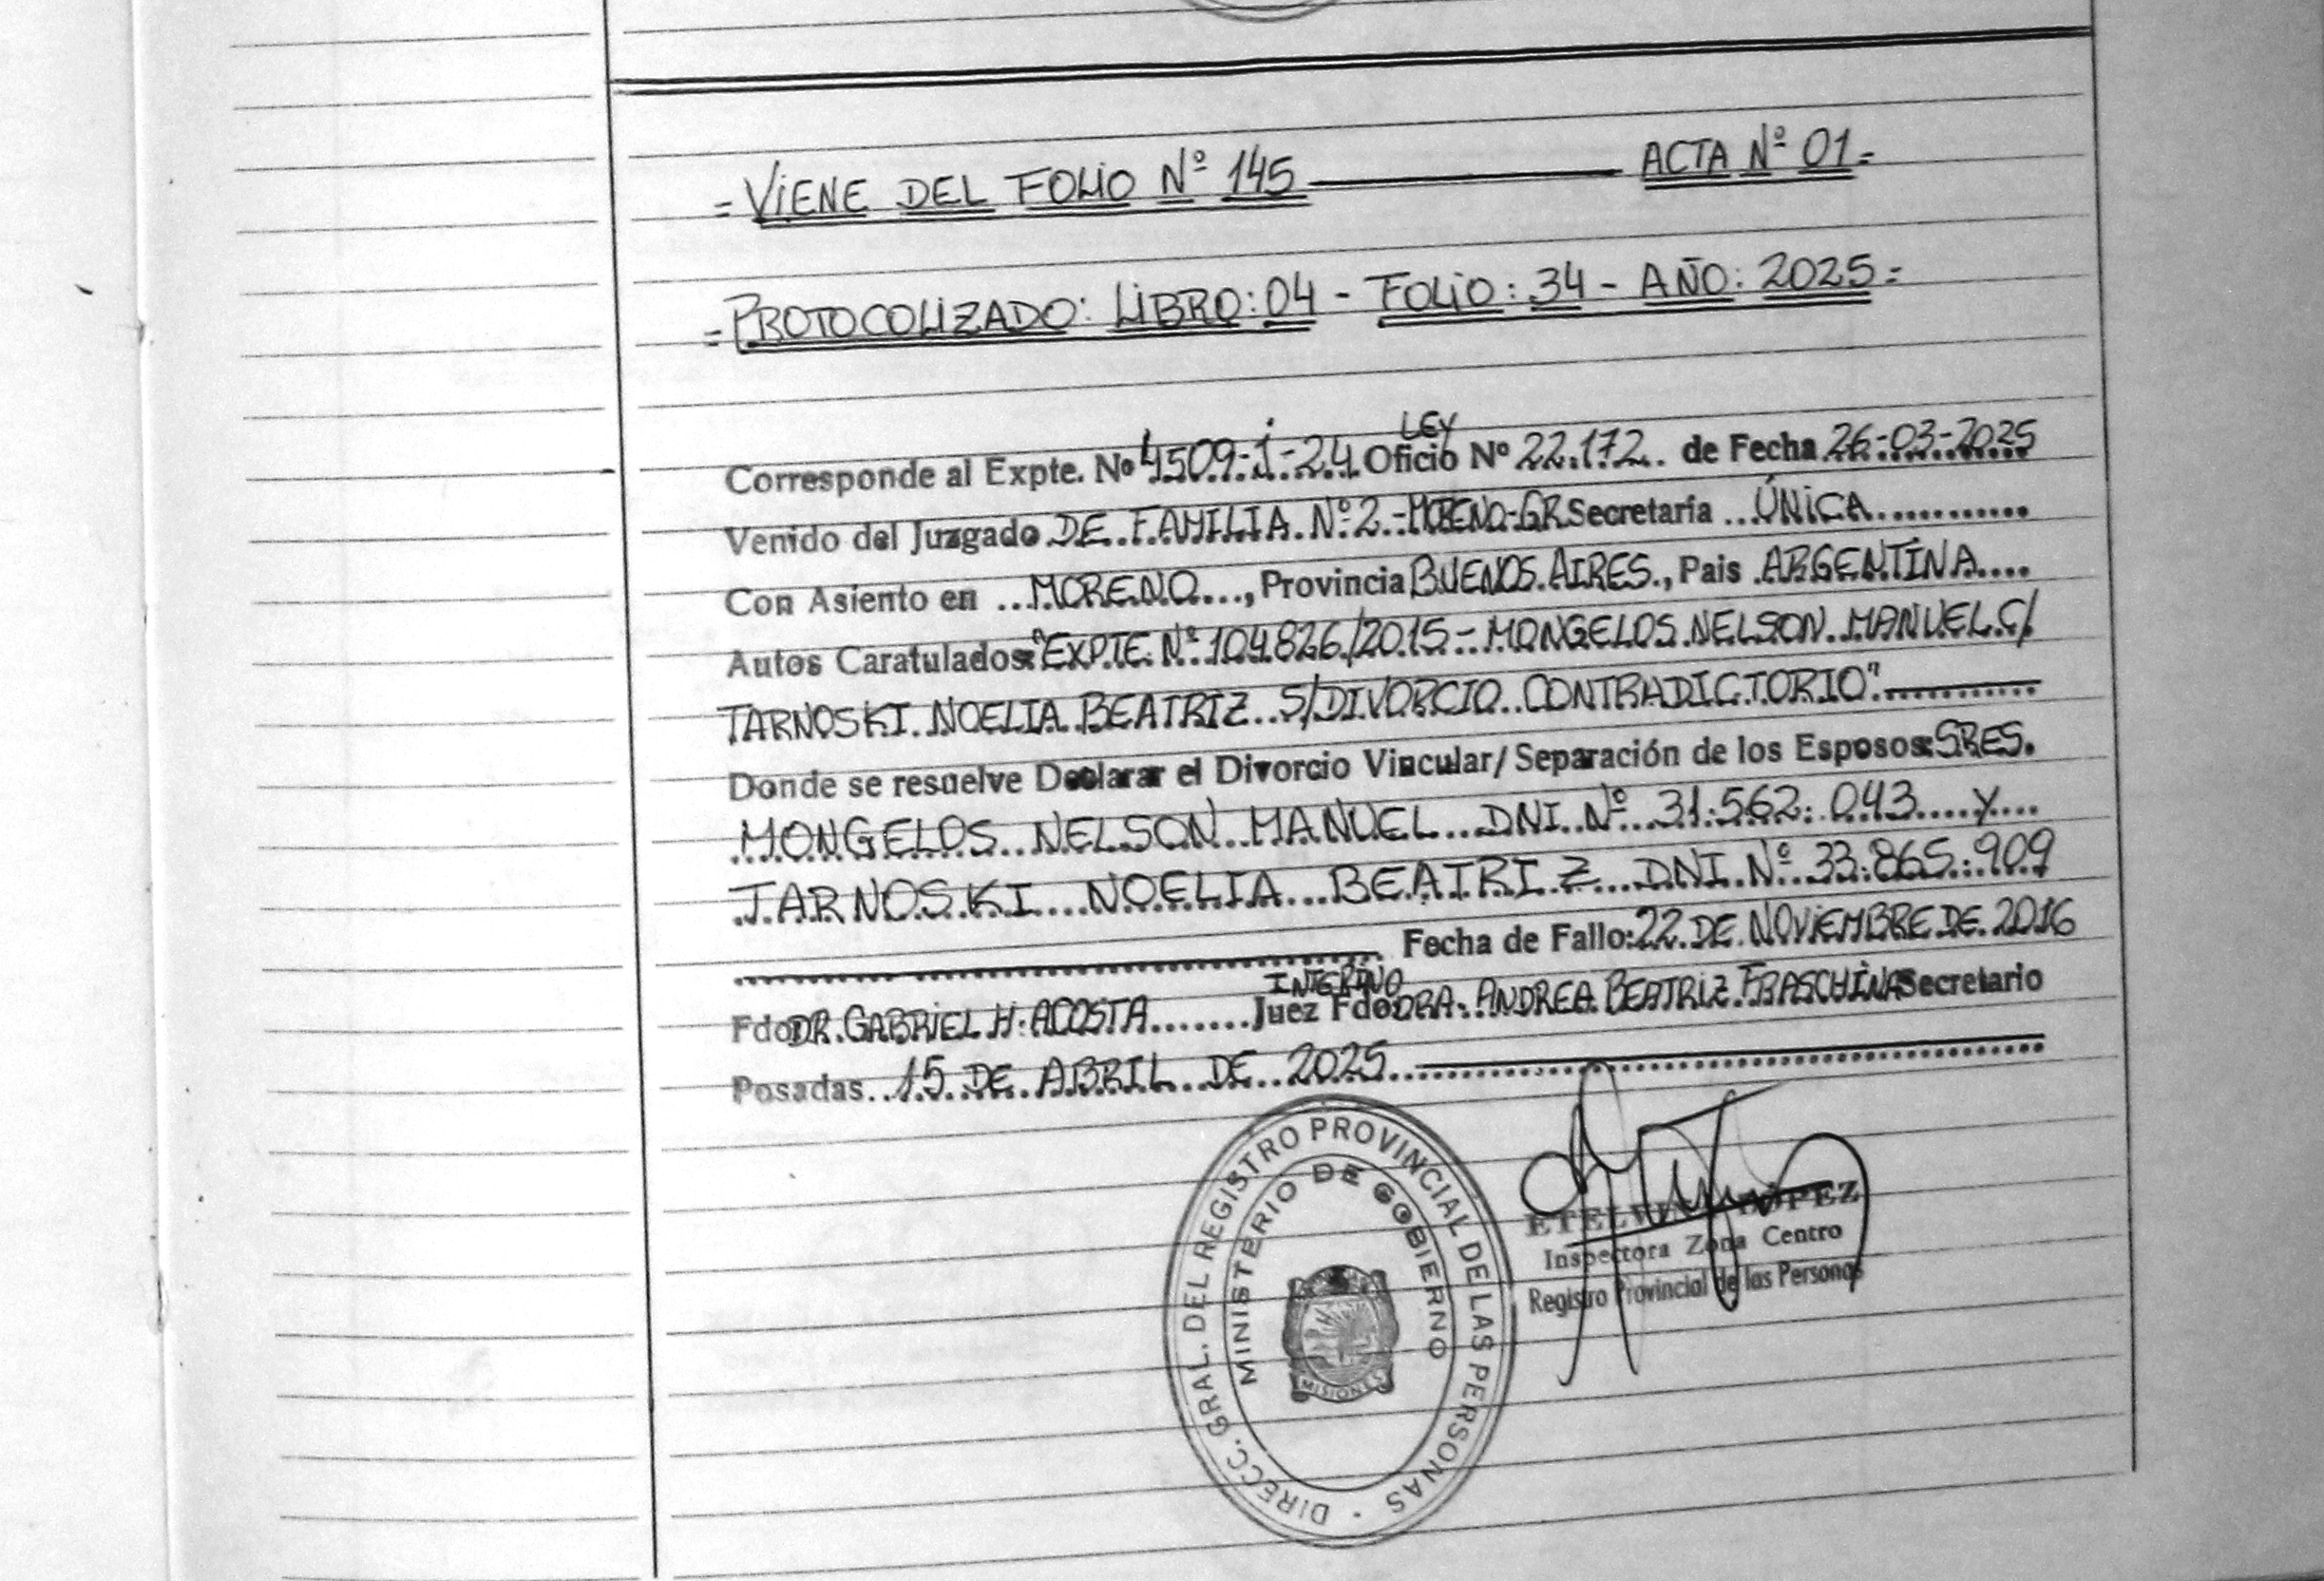 =VIENE DEL FOLIO Nº 145 ACTA Nº 01=
=PROTOCOLIZADO: LIBRO: 04 - FOLIO: 34 - AÑO: 2025=
LEY
Corresponde al Expte. Nº 4509-J-24 Oficio Nº 22.172.. de Fecha 26-03-2025
Venido del Juzgado DE FAMILIA Nº 2 - MORENO-GR Secretaría ...ÚNICA............
Con Asiento en ...MORENO...., Provincia BUENOS AIRES., Pais ARGENTINA....
Autos Caratulados: "EXPTE. Nº 104.826/2015 - MONGELOS NELSON MANUEL C/
TARNOSKI NOELIA BEATRIZ S/DIVORCIO CONTRADICTORIO".
Donde se resuelve Declarar el Divorcio Vincular/Separación de los Esposos: SRES.
MONGELOS NELSON MANUEL DNI Nº 31.562.043 y
TARNOSKI NOELIA BEATRIZ DNI Nº 33.865.909
Fecha de Fallo: 22 DE NOVIEMBRE DE 2016
INTERINO
Fdo DR. GABRIEL H. ACOSTA....... Juez Fdo: DRA. ANDREA BEATRIZ FRASCHINA Secretario
Posadas.. 15 DE ABRIL DE 2025..
DIRECC. GRAL. DEL REGISTRO PROVINCIAL DE LAS PERSONAS
MINISTERIO DE GOBIERNO
MISIONES
ETELVINA LÓPEZ
Inspectora Zona Centro
Registro Provincial de las Personas